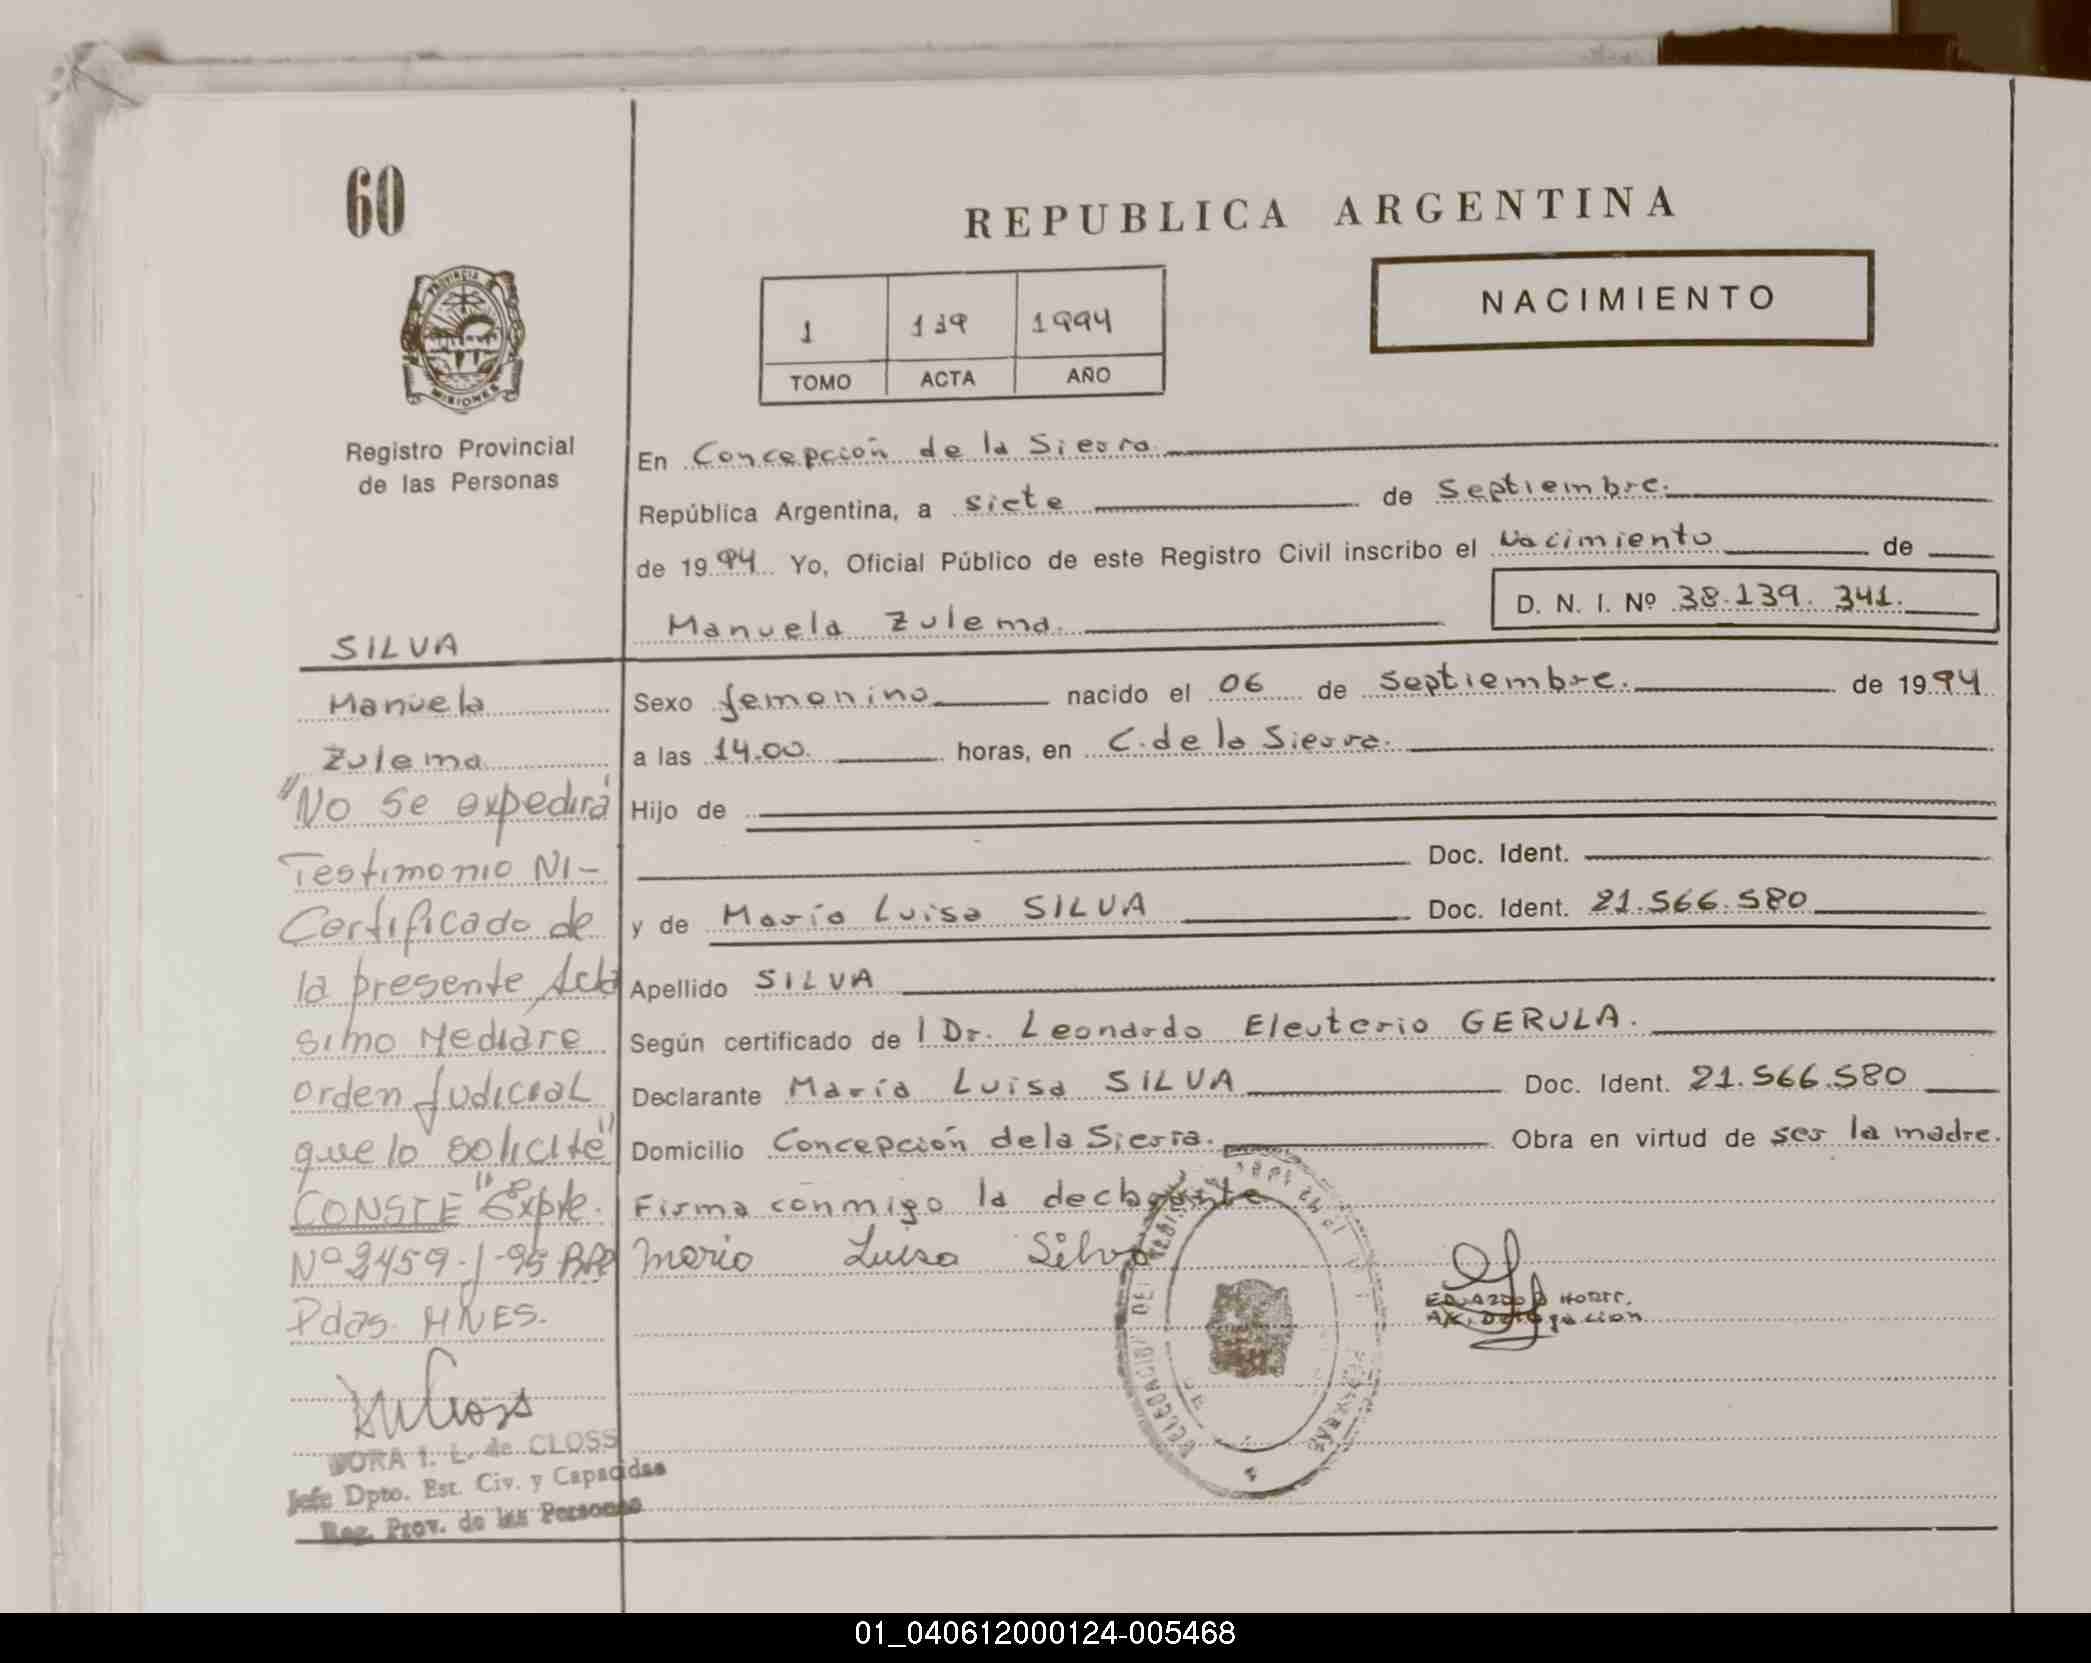 60
REPUBLICA ARGENTINA
PROVINCIA DE
MISIONES
NACIMIENTO
1 139 1994
TOMO ACTA AÑO
Registro Provincial
de las Personas
En Concepción de la Sierra
República Argentina, a siete de Septiembre.
de 1994 Yo, Oficial Público de este Registro Civil inscribo el Nacimiento de
Manuela Zulema. D. N. I. Nº 38.139.341.
SILVA
Manuela
Zulema
"No se expedirá
Testimonio NI-
Certificado de
la presente Acta
sino Mediare
orden Judicial
que lo solicite"
CONSTE" Expte.
Nº 2459-J-95
Pdas. MNES.
DORA I. L. de CLOSS
Jefe Dpto. Est. Civ. y Capacidad
Reg. Prov. de las Personas
Sexo femenino nacido el 06 de Septiembre. de 1994
a las 14.00. horas, en C. de la Sierra.
Hijo de
Doc. Ident.
y de María Luisa SILVA Doc. Ident. 21.566.580
Apellido SILVA
Según certificado de l Dr. Leonardo Eleuterio GERULA.
Declarante María Luisa SILVA Doc. Ident. 21.566.580
Domicilio Concepción de la Sierra. Obra en virtud de ser la madre.
Firma conmigo la declarante
Maria Luisa Silva
01_040612000124-005468